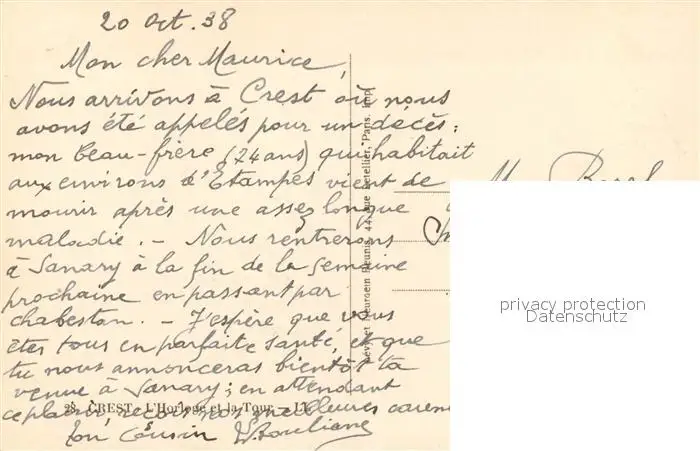 20 Oct. 38
Mon cher Maurice,
Nous arrivons à Crest où nous
avons été appelés pour un decès:
mon beau-frère (74 ans) qui habitait
aux environs d'Etampes vient de
mourir après une assez longue
maladie. - Nous rentrerons
à Sanary à la fin de la semaine
prochaine en passant par
Chabestan. - J'espère que vous
êtes tous en parfaite santé, et que
tu nous annonceras bientôt ta
venue à Sanary; en attendant
ce plaisir, reçois nos meilleures
ton Cousin
23. CREST - L'Horloge et la Tour - LL
Lévy et Neurdein Réunis, 44, rue Letellier, Paris, Imp.
M.
privacy protection
Datenschutz